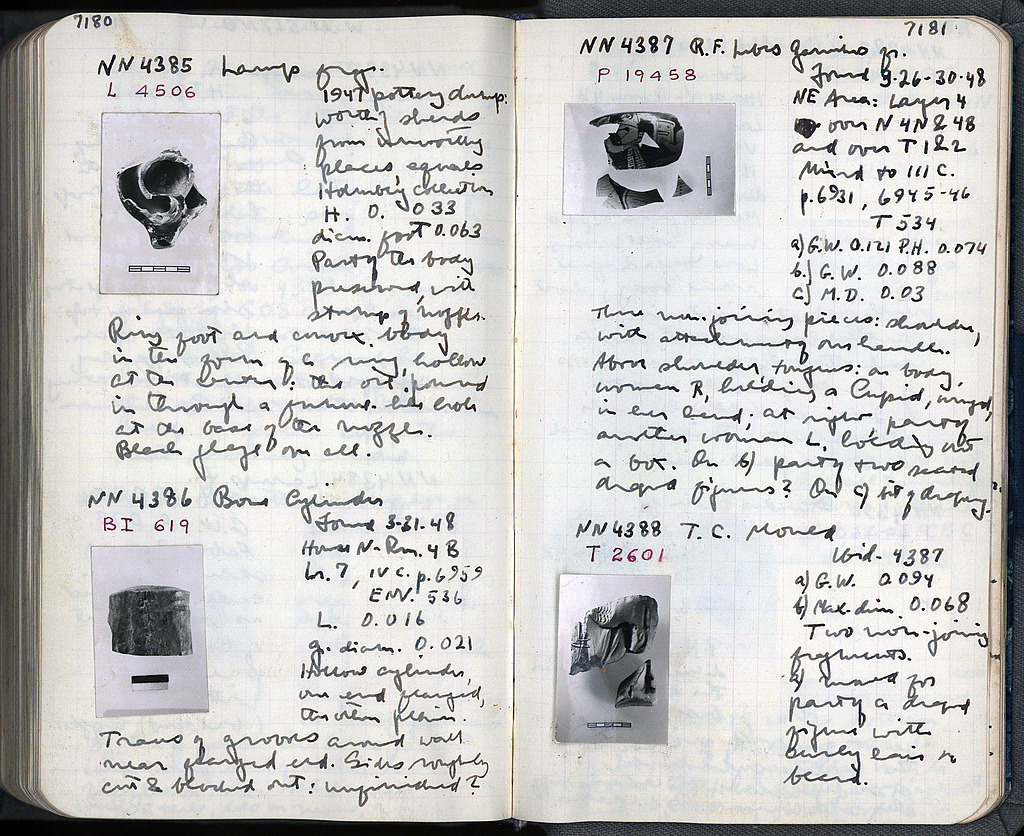 7180
NN 4385 Lamp frgs.
L 4506
1947 pottery dump:
worthy sherds
from unworthy
places, equals
Holmboy's collection
H. 0.033
diam. foot 0.063
Part of the body
preserved, with
stump of nozzle.
Ring foot and convex body
in the form of a ring, hollow
at the center: the oil poured
in through a hole
at the base of the nozzle.
Black glaze over all.
NN 4386 Bone Cylinder
BI 619
Found 3-31-48
House N - Rm. 4 B
Lr. 7, IV C. p. 6959
ENV. 536
L. 0.016
g. diam. 0.021
Hollow cylinder,
one end flanged,
the other plain.
Traces of grooves around wall
near flanged end. Sides roughly
cut & blocked out: unfinished?
7181
NN 4387 R.F. Lebes Gamikos fr.
P 19458
Found 3-26-30-48
NE Area: Layer 4
over N 4 N & 48
and over T 1 & 2
Mixed to III C.
p. 6931, 6945-46
T 534
a) G.W. 0.121 P.H. 0.074
b) G.W. 0.088
c) M.D. 0.03
Three non-joining pieces: shoulder,
with attachment of one handle.
Above shoulder tongues: on body,
woman R, holding a Cupid, winged,
in her hand; at right, part of
another woman L. holding out
a box. On b) part of two seated
draped figures? On c) bit of drapery.
NN 4388 T.C. Mould
T 2601
Ibid. 4387
a) G.W. 0.094
b) Max. dim. 0.068
Two non-joining
fragments.
a) mould for
part of a draped
figure with
curly hair or
beard.